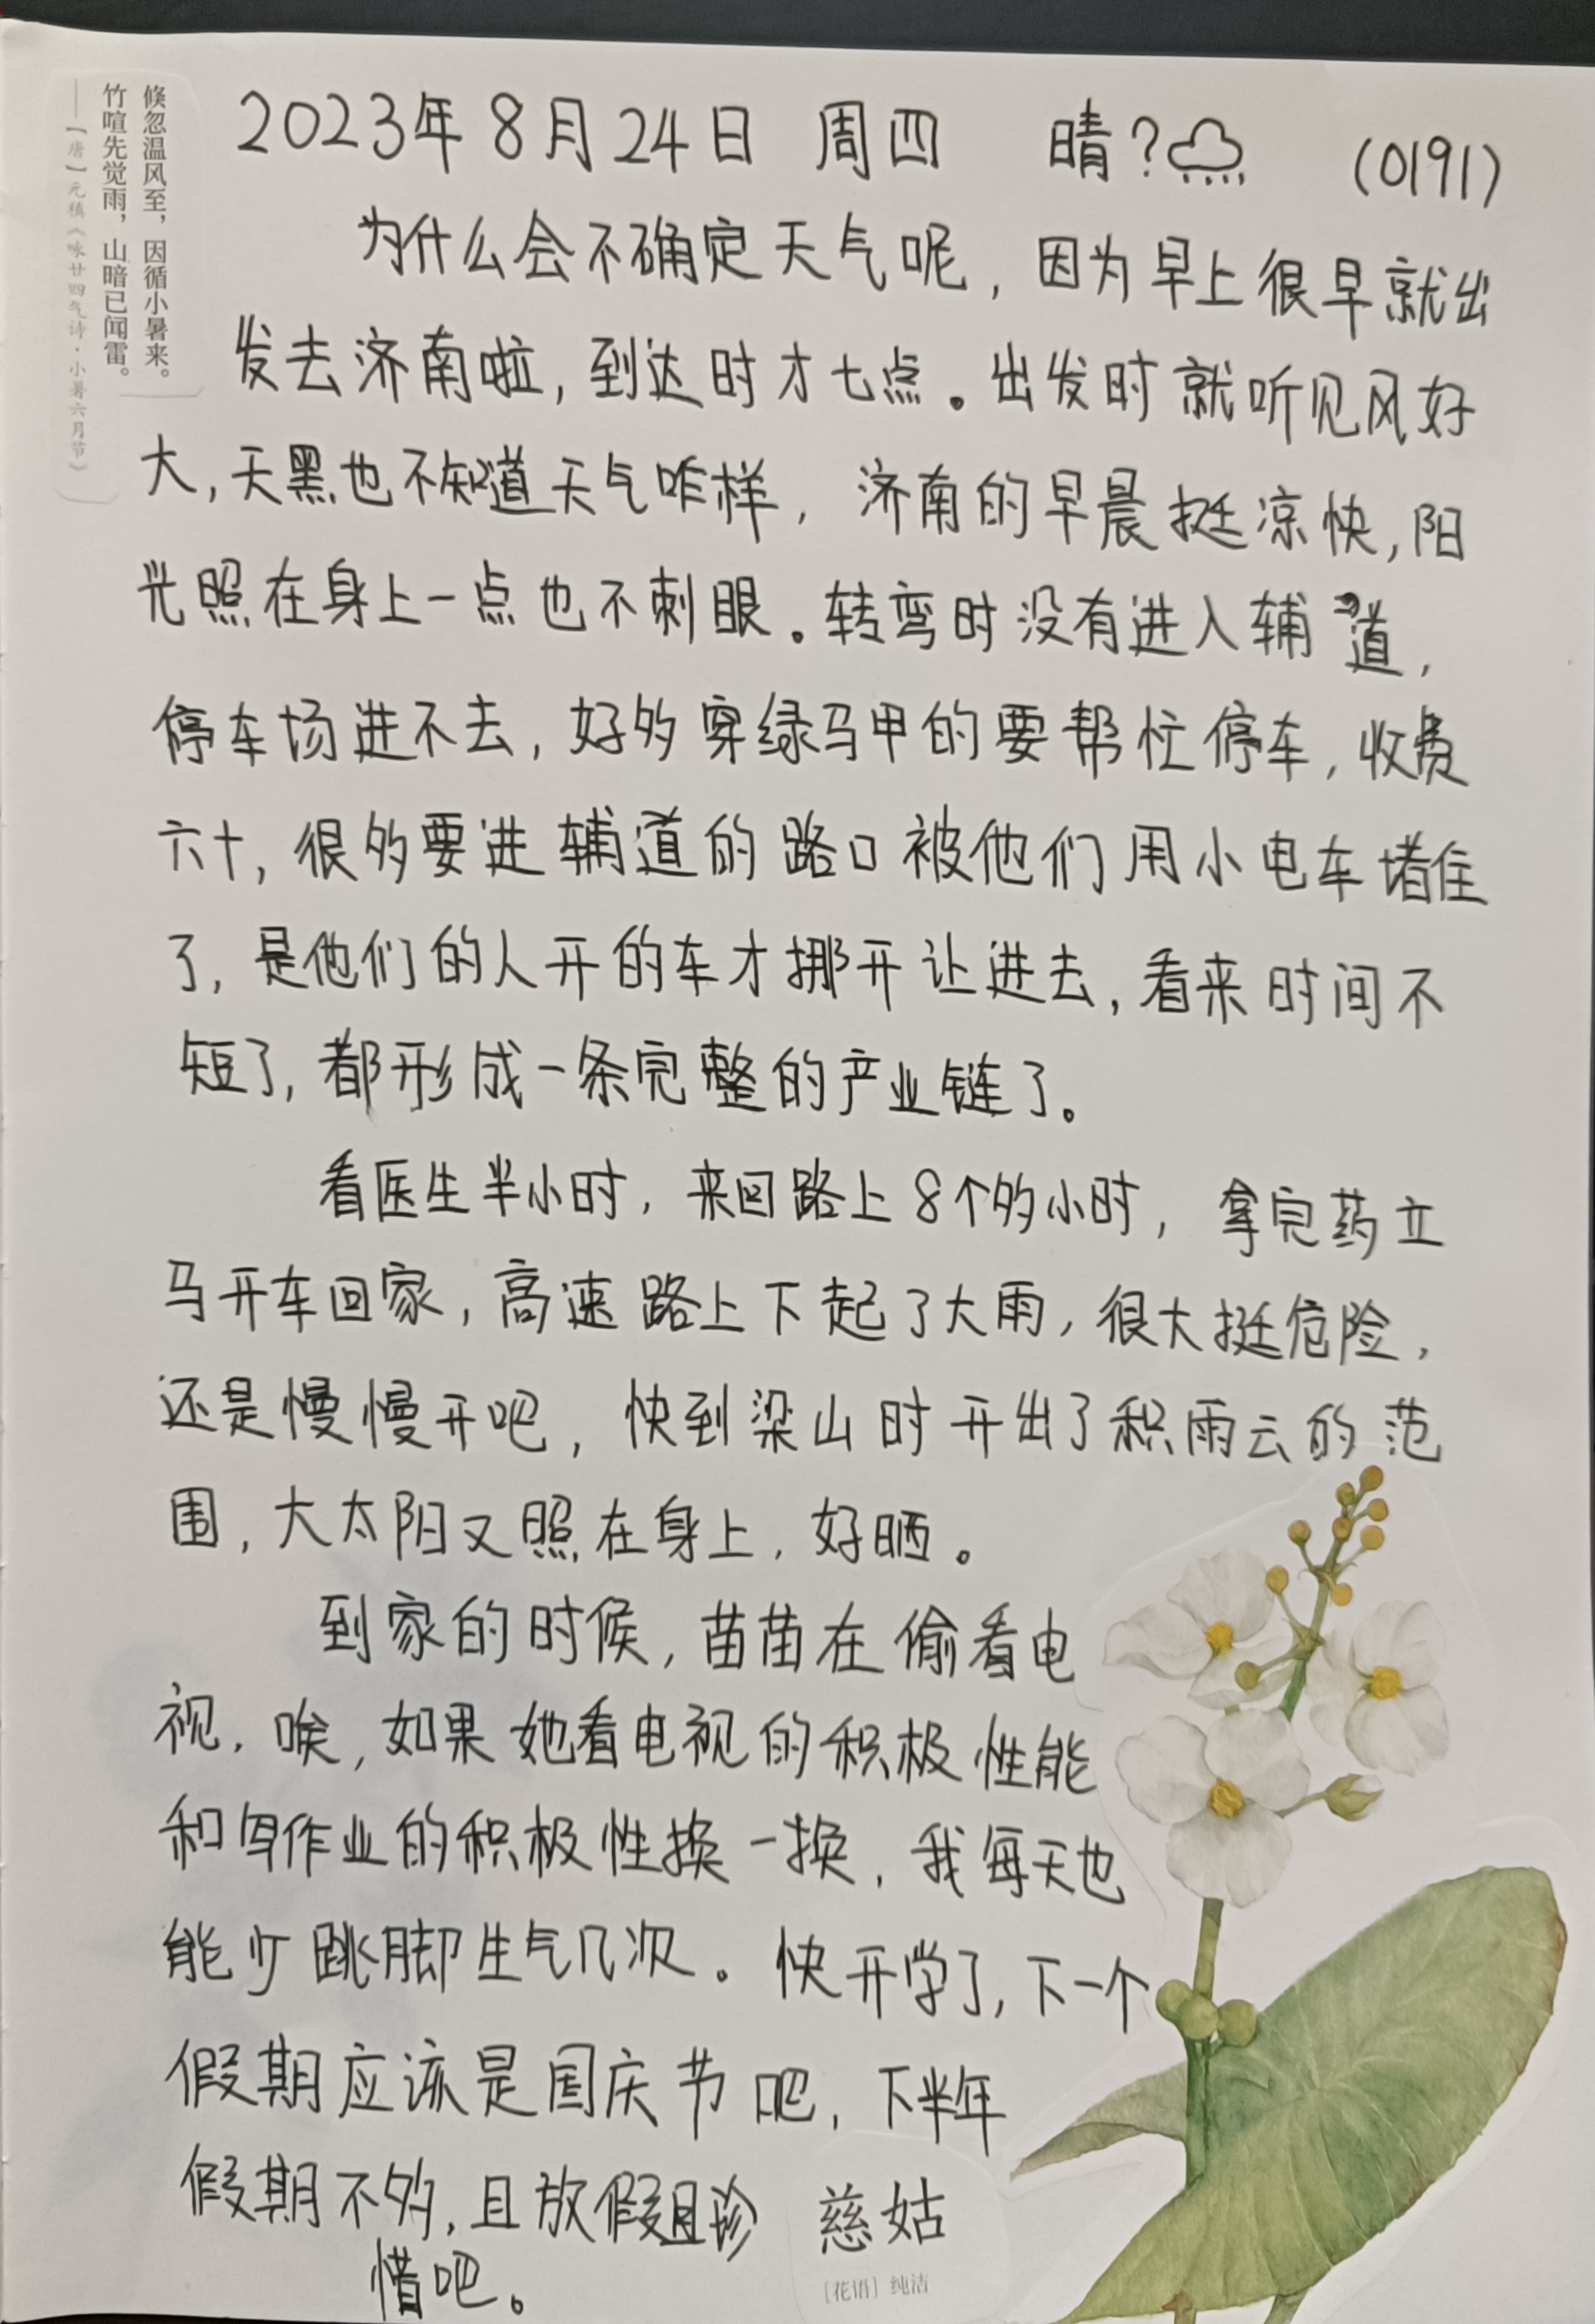 倏忽温风至，因循小暑来。
竹喧先觉雨，山暗已闻雷。
——［唐］元稹《咏廿四气诗·小暑六月节》
2023年8月24日 周四 晴? (0191)
为什么会不确定天气呢，因为早上很早就出
发去济南啦，到达时才七点。出发时就听见风好
大，天黑也不知道天气咋样，济南的早晨挺凉快，阳
光照在身上一点也不刺眼。转弯时没有进入辅道，
停车场进不去，好多穿绿马甲的要帮忙停车，收费
六十，很多要进辅道的路口被他们用小电车堵住
了，是他们的人开的车才挪开让进去，看来时间不
短了，都形成一条完整的产业链了。
看医生半小时，来回路上8个多小时，拿完药立
马开车回家，高速路上下起了大雨，很大挺危险，
还是慢慢开吧，快到梁山时开出了积雨云的范
围，大太阳又照在身上，好晒。
到家的时候，苗苗在偷看电
视，唉，如果她看电视的积极性能
和写作业的积极性换一换，我每天也
能少跳脚生气几次。快开学了，下一个
假期应该是国庆节吧，下半年
假期不多，且放假且珍
惜吧。
慈姑
［花语］纯洁